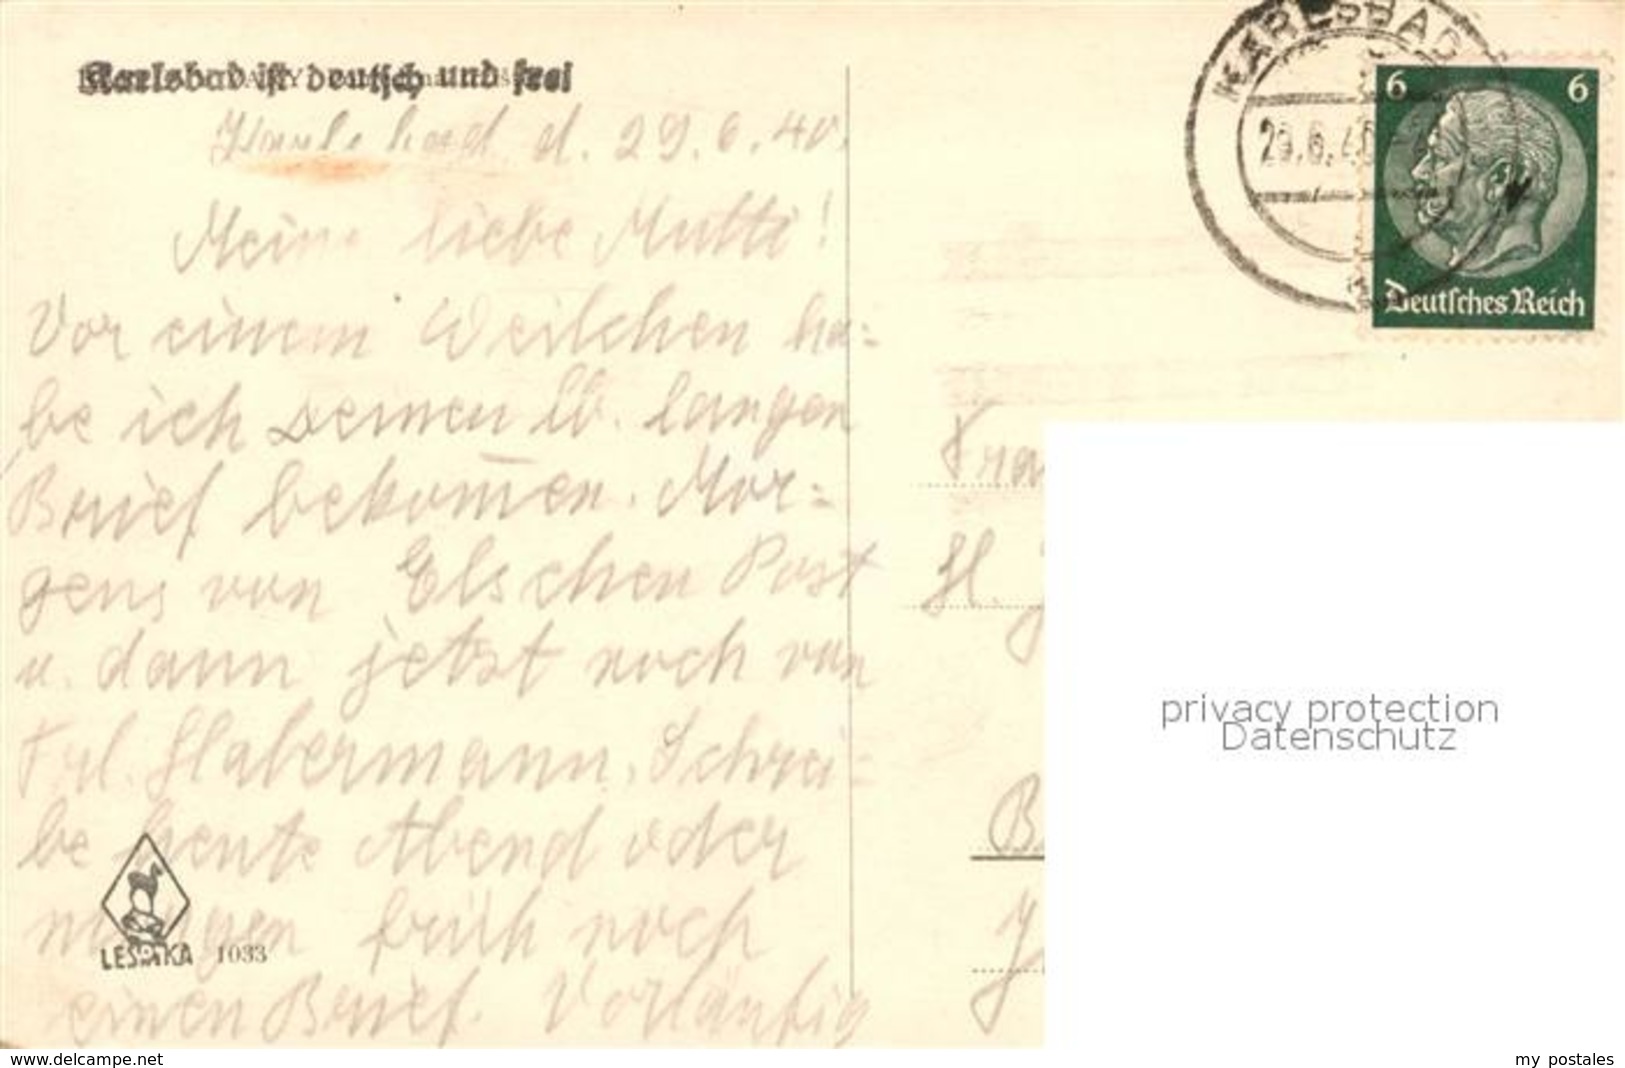 Karlsbad ist deutsch und frei
Karlsbad d. 29.6.40.
Meine liebe Mutti!
Vor einem Weilchen ha=
be ich Deinen lb. langen
Brief bekom̅en. Mor=
gens von Elschen Post
u. dann jetzt noch von
Frl. Habermann. Schrei=
be heute Abend oder
morgen früh noch
einen Brief. Vorläufig
LESOKA 1033
KARLSBAD
29.6.40
6 6
Deutsches Reich
Frau
H.
B.
privacy protection
Datenschutz
www.delcampe.net
my postales